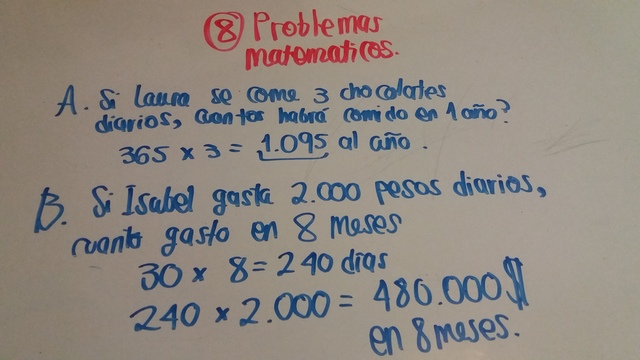 8 Problemas
matematicos.
A. Si Laura se come 3 chocolates
diarios, cuantos habrá comido en 1 año?
365 x 3 = 1.095 al año.
B. Si Isabel gasta 2.000 pesos diarios,
cuanto gasto en 8 meses
30 x 8 = 240 días
240 x 2.000 = 480.000 $
en 8 meses.